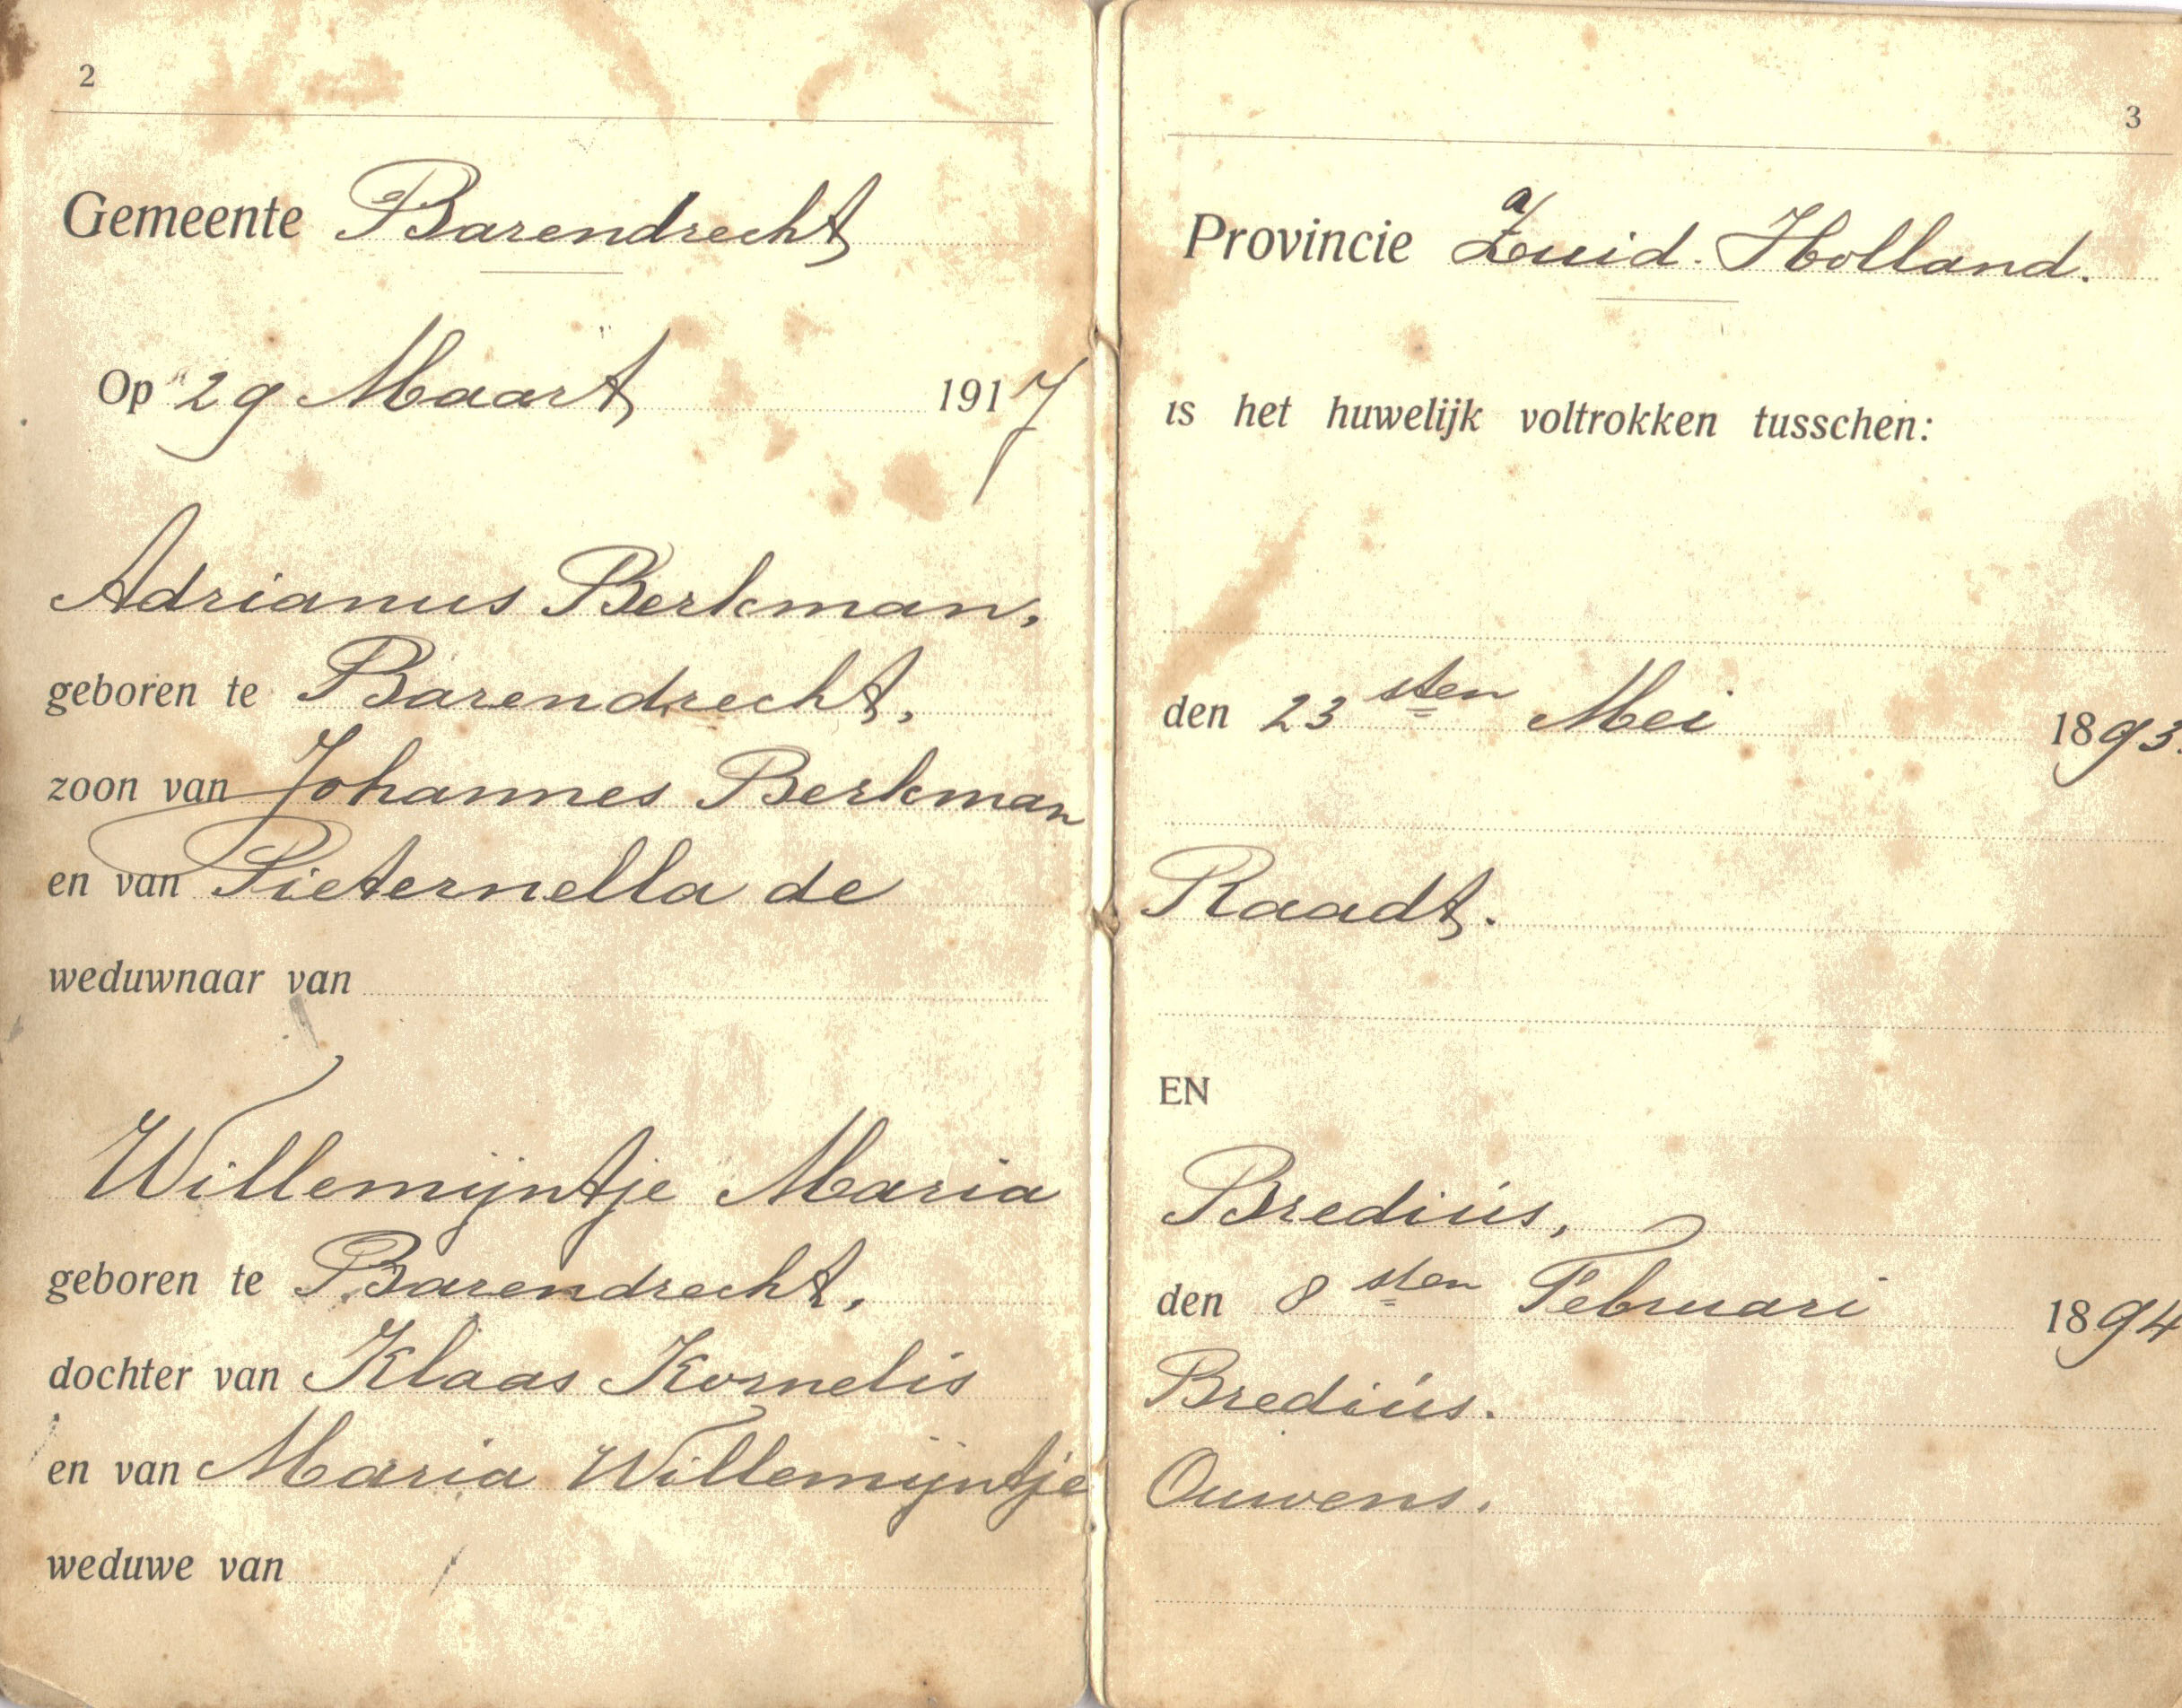 2
Gemeente Barendrecht
Op 29 Maart 1917
Adrianus Berkman,
geboren te Barendrecht,
zoon van Johannes Berkman
en van Pieternella de
weduwnaar van
Willemijntje Maria
geboren te Barendrecht,
dochter van Klaas Kornelis
en van Maria Willemijntje
weduwe van
3
Provincie Zuid-Holland.
is het huwelijk voltrokken tusschen:
den 23sten Mei 1893.
Raadt.
EN
Bredius,
den 8sten Februari 1894
Bredius.
Ouwens.